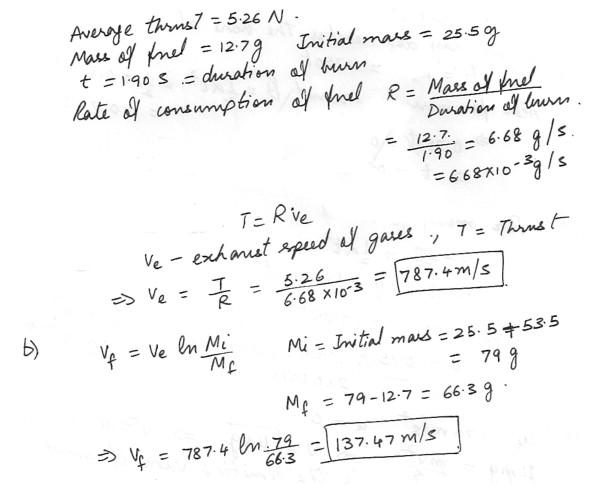 Average thrust = 5.26 N.
Mass of fuel = 12.7g Initial mass = 25.5g
t = 1.90 s = duration of burn
Rate of consumption of fuel R = Mass of fuel / Duration of burn.
= 12.7. / 1.90 = 6.68 g/s.
= 6.68×10⁻³g/s
T = Rve
ve - exhaust speed of gases, T = Thrust
⇒ ve = T/R = 5.26 / 6.68 ×10⁻³ = 787.4 m/s
b) vf = ve ln Mi/Mf Mi = Initial mass = 25.5 + 53.5
= 79 g
Mf = 79-12.7 = 66.3 g.
⇒ vf = 787.4 ln 79/66.3 = 137.47 m/s